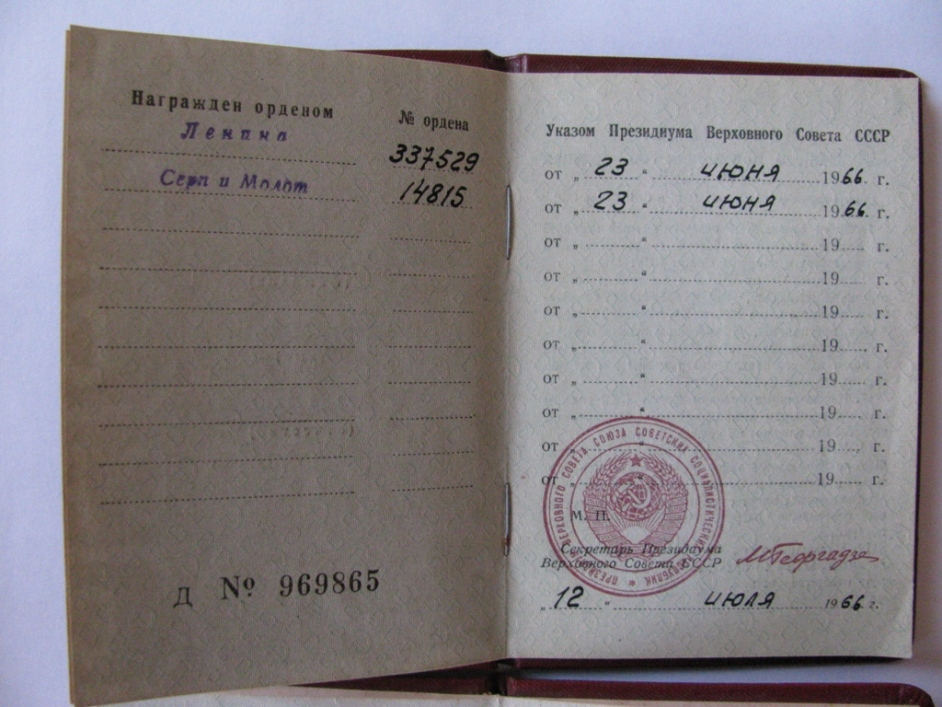 Награжден орденом
№ ордена
Ленина
337529
Серп и Молот
14815
Д № 969865
Указом Президиума Верховного Совета СССР
от „ 23 “ июня 1966 г.
от „ 23 “ июня 1966 г.
от „ “ 19 г.
от „ “ 19 г.
от „ “ 19 г.
от „ “ 19 г.
от „ “ 19 г.
от „ “ 19 г.
от „ “ 19 г.
от „ “ 19 г.
М. П.
Секретарь Президиума
Верховного Совета СССР
МГеоргадзе
„ 12 “ июля 1966 г.
ВЕРХОВНОГО СОВЕТА СОЮЗА СОВЕТСКИХ СОЦИАЛИСТИЧЕСКИХ